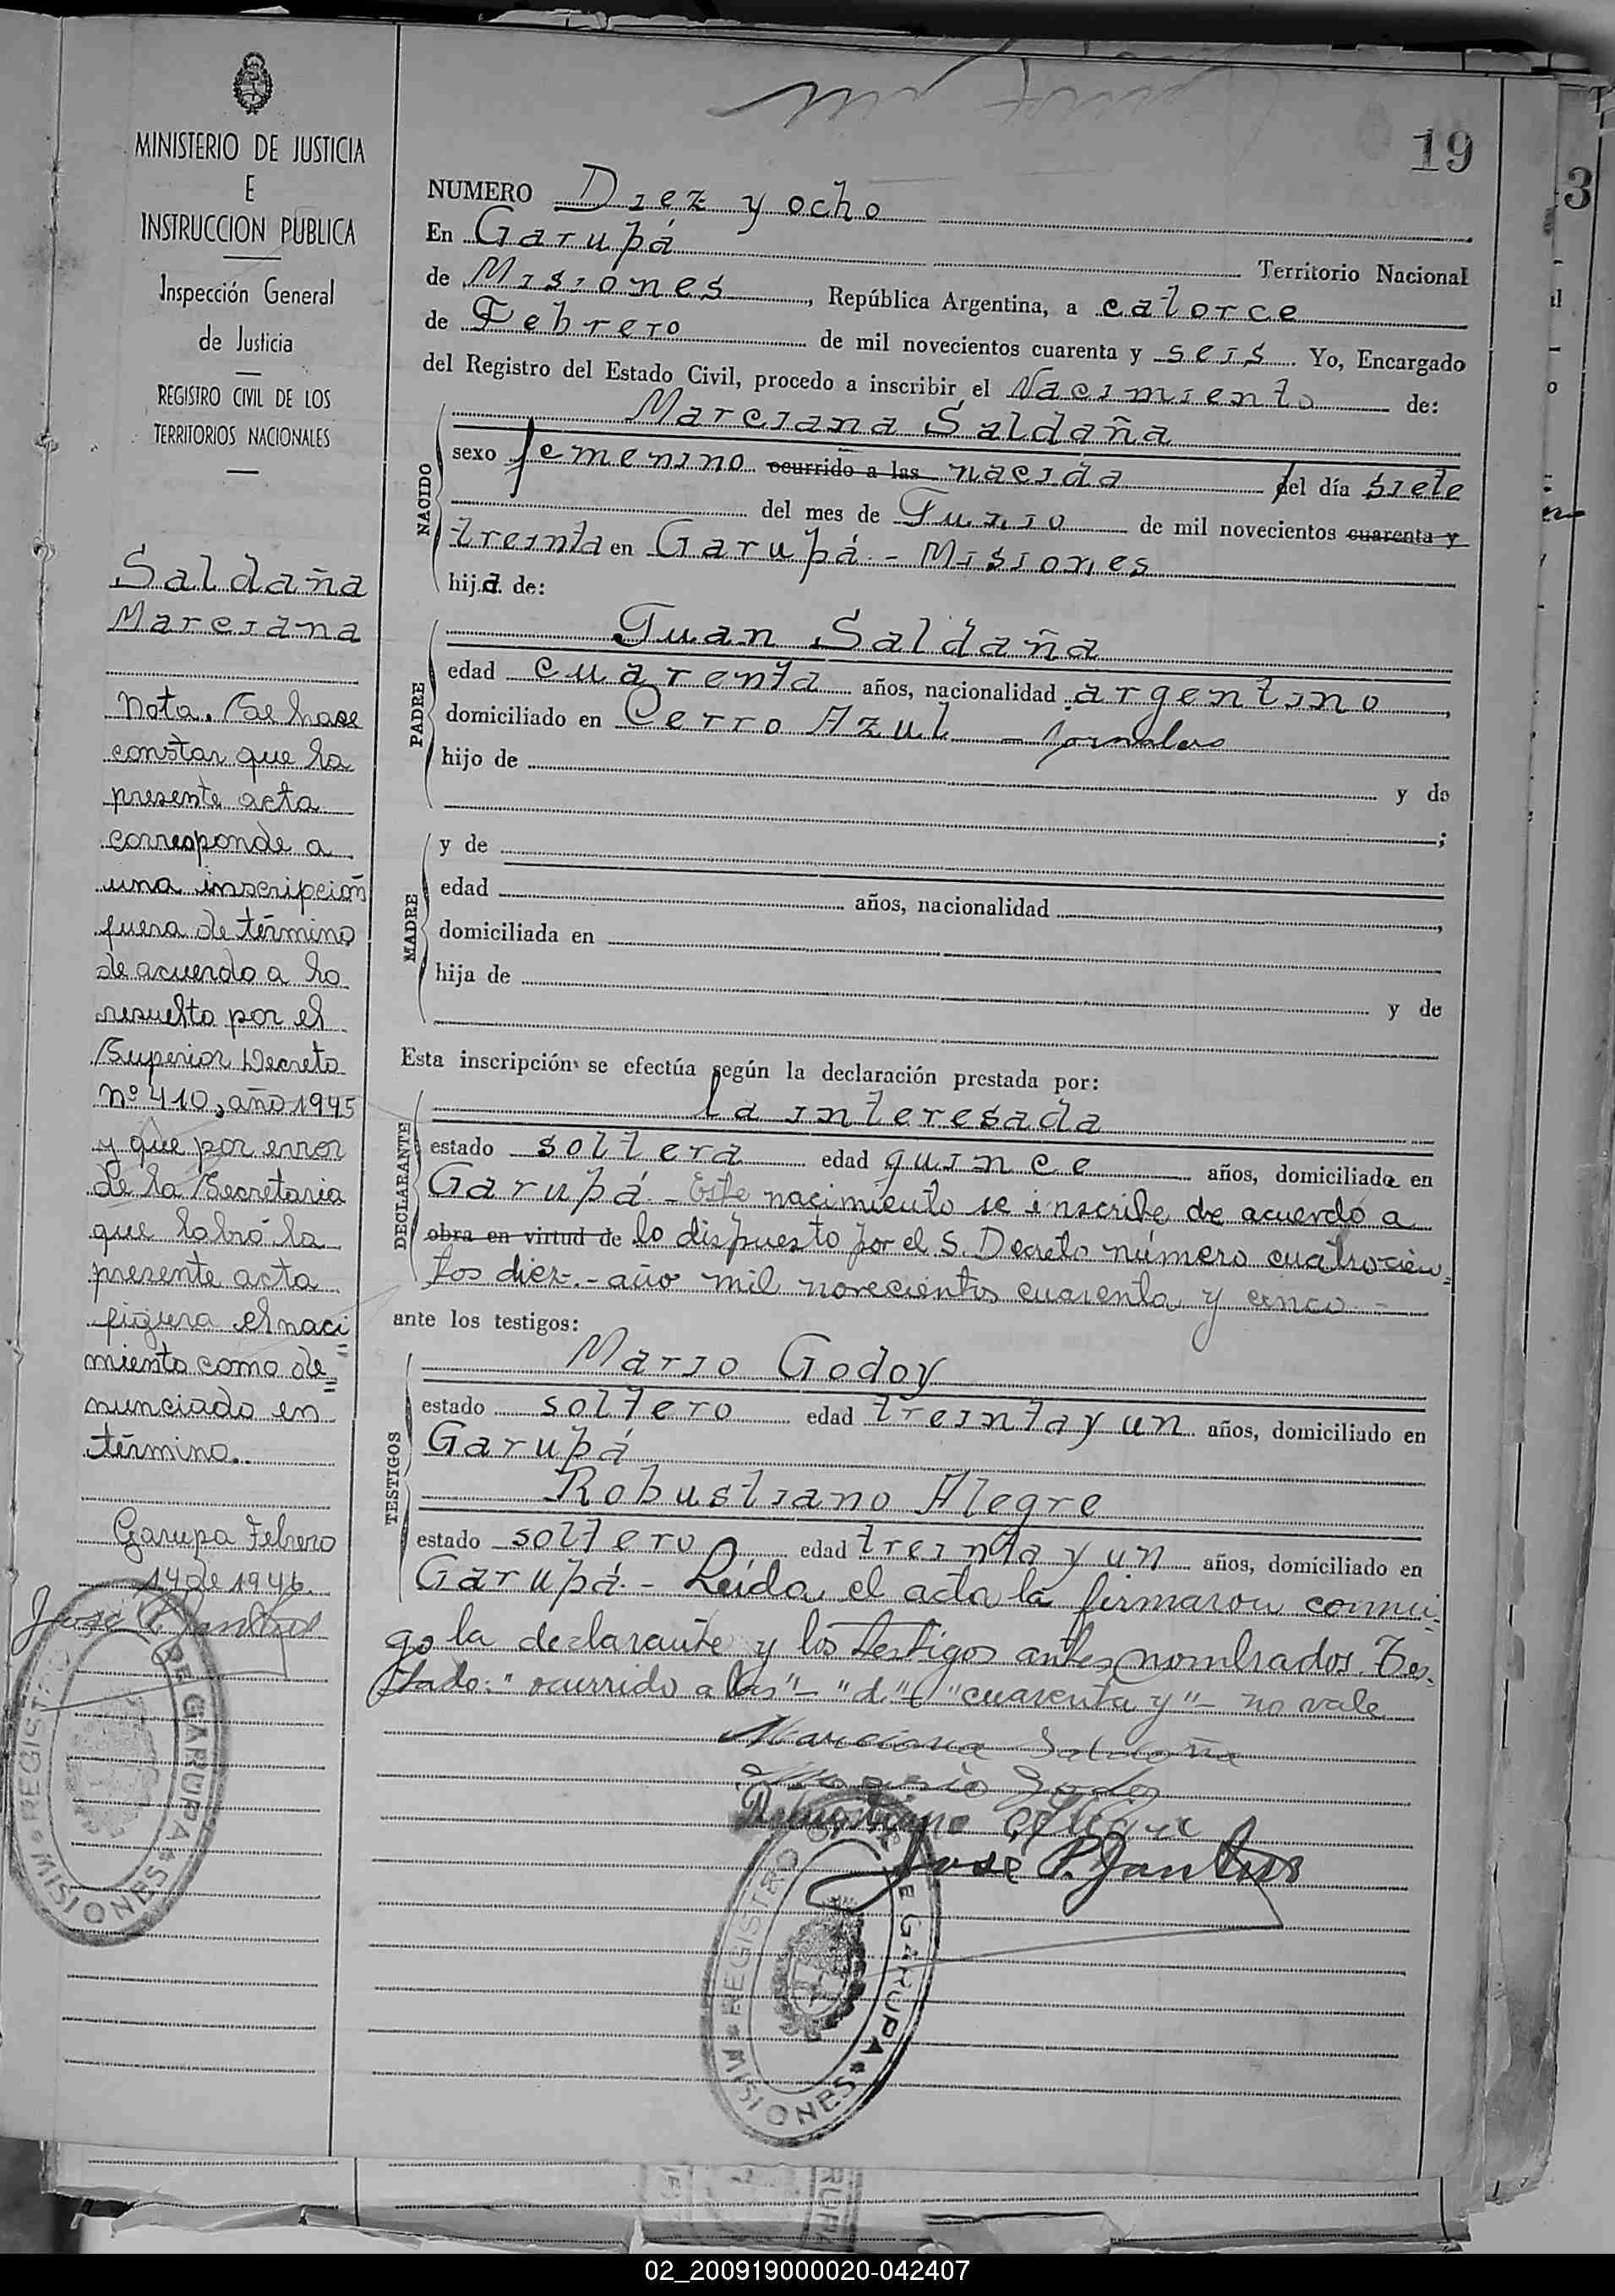 19
3
MINISTERIO DE JUSTICIA
E
INSTRUCCION PUBLICA
Inspección General
de Justicia
REGISTRO CIVIL DE LOS
TERRITORIOS NACIONALES
Saldaña
Marciana
Nota. Se hace
constar que la
presente acta
corresponde a
una inscripción
fuera de término
de acuerdo a lo
resuelto por el
Superior Decreto
Nº 410, año 1945
y que por error
de la Secretaria
que labró la
presente acta
figura el naci
miento como de
nunciado en
término.
Garupa Febrero
14 de 1946.
REGISTRO DE GARUPA * MISIONES *
NUMERO Diez y ocho
En Garupá Territorio Nacional
de Misiones, República Argentina, a catorce
de Febrero de mil novecientos cuarenta y seis. Yo, Encargado
del Registro del Estado Civil, procedo a inscribir el Nacimiento de:
NACIDO
Marciana Saldaña
sexo femenino ocurrido a las nacida del día siete
del mes de Junio de mil novecientos cuarenta y
treinta en Garupá - Misiones
hija de:
PADRE
Juan Saldaña
edad cuarenta años, nacionalidad argentino,
domiciliado en Cerro Azul - jornalero
hijo de y de
;
MADRE
y de
edad años, nacionalidad ,
domiciliada en
hija de y de
Esta inscripción se efectúa según la declaración prestada por:
DECLARANTE
la interesada
estado soltera edad quince años, domiciliada en
Garupá - Este nacimiento se inscribe de acuerdo a
obra en virtud de lo dispuesto por el S. Decreto número cuatrocien=
tos diez.- año mil novecientos cuarenta y cinco.-
ante los testigos:
TESTIGOS
Mario Godoy
estado soltero edad treinta y un años, domiciliado en
Garupá
Robustiano Alegre
estado soltero edad treinta y un años, domiciliado en
Garupá.- Leída el acta la firmaron conmi-
go la declarante y los testigos antes nombrados. Tes-
tado: "ocurrido a las"- "d"- "cuarenta y"- no vale
Marciana Saldaña
Mario Godoy
Robustiano Alegre
José P.
REGISTRO DE GARUPA * MISIONES *
02_200919000020-042407